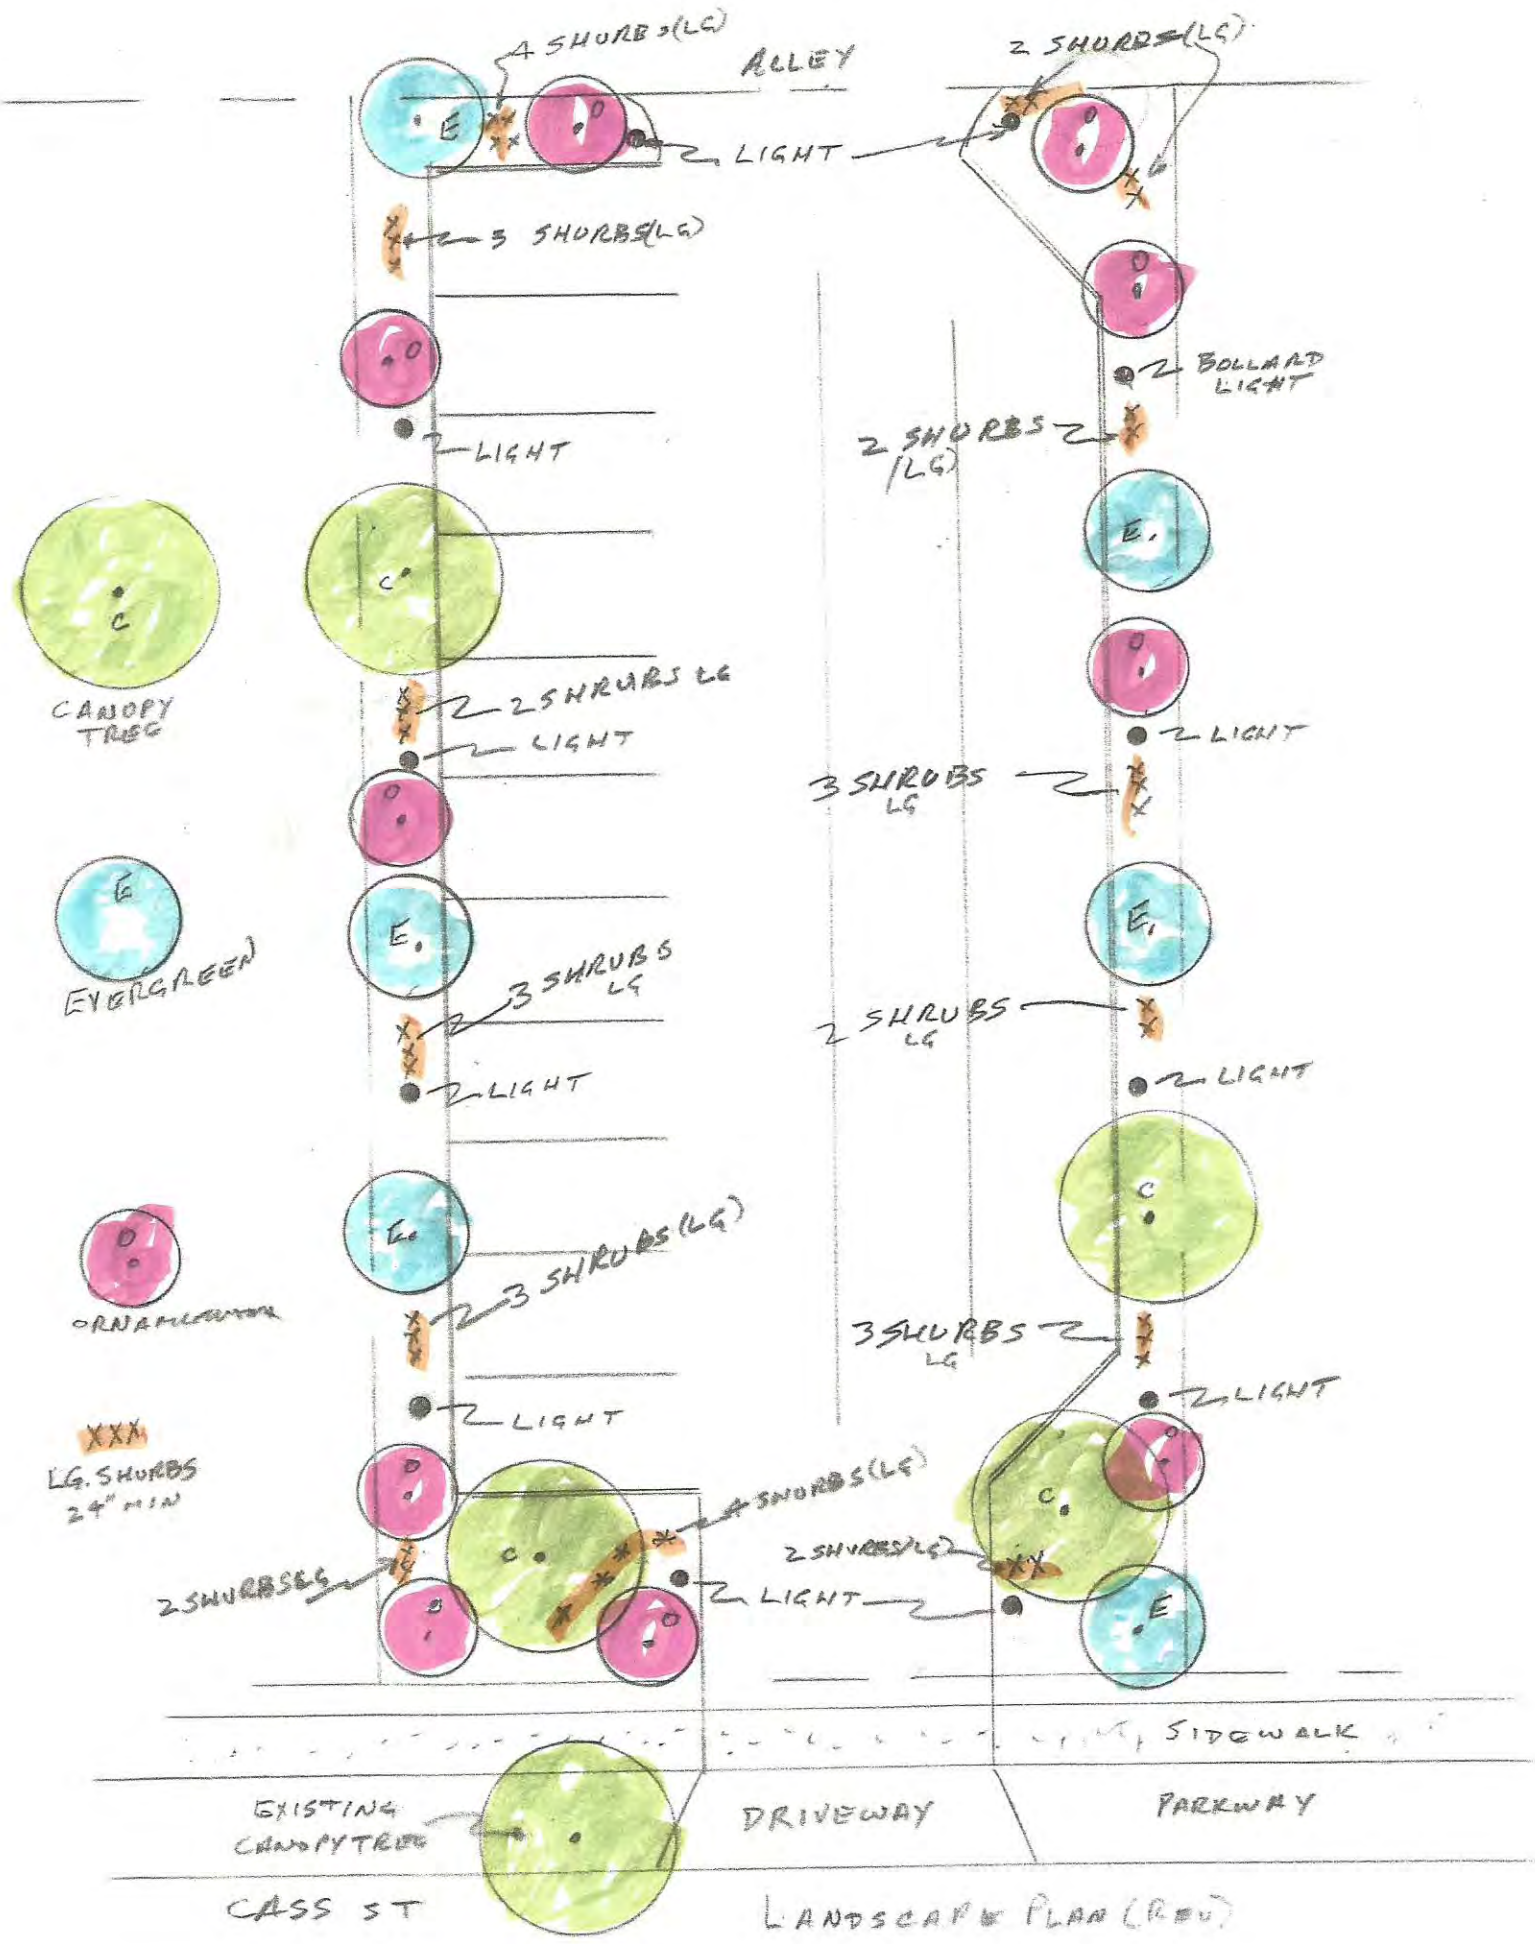 4 SHURBS(LG)
ALLEY
2 SHURBS(LG)
E
O
O
LIGHT
3 SHURBS(LG)
O
BOLLARD
LIGHT
O
2 SHURBS
(LG)
LIGHT
E.
C
C
CANOPY
TREE
O
2 SHRUBS LG
LIGHT
LIGHT
3 SHRUBS
LG
O
E
E.
E.
EVERGREEN
3 SHRUBS
LG
2 SHRUBS
LG
LIGHT
LIGHT
C
O
E.
3 SHRUBS(LG)
3 SHURBS
LG
LIGHT
LIGHT
XXX
LG. SHURBS
24" MIN
O
O
4 SHURBS(LG)
C
C
2 SHURBS(LG)
2 SHURBS LG
LIGHT
O
O
E
SIDEWALK
EXISTING
CANOPY TREE
DRIVEWAY
PARKWAY
CASS ST
LANDSCAPE PLAN (REV)